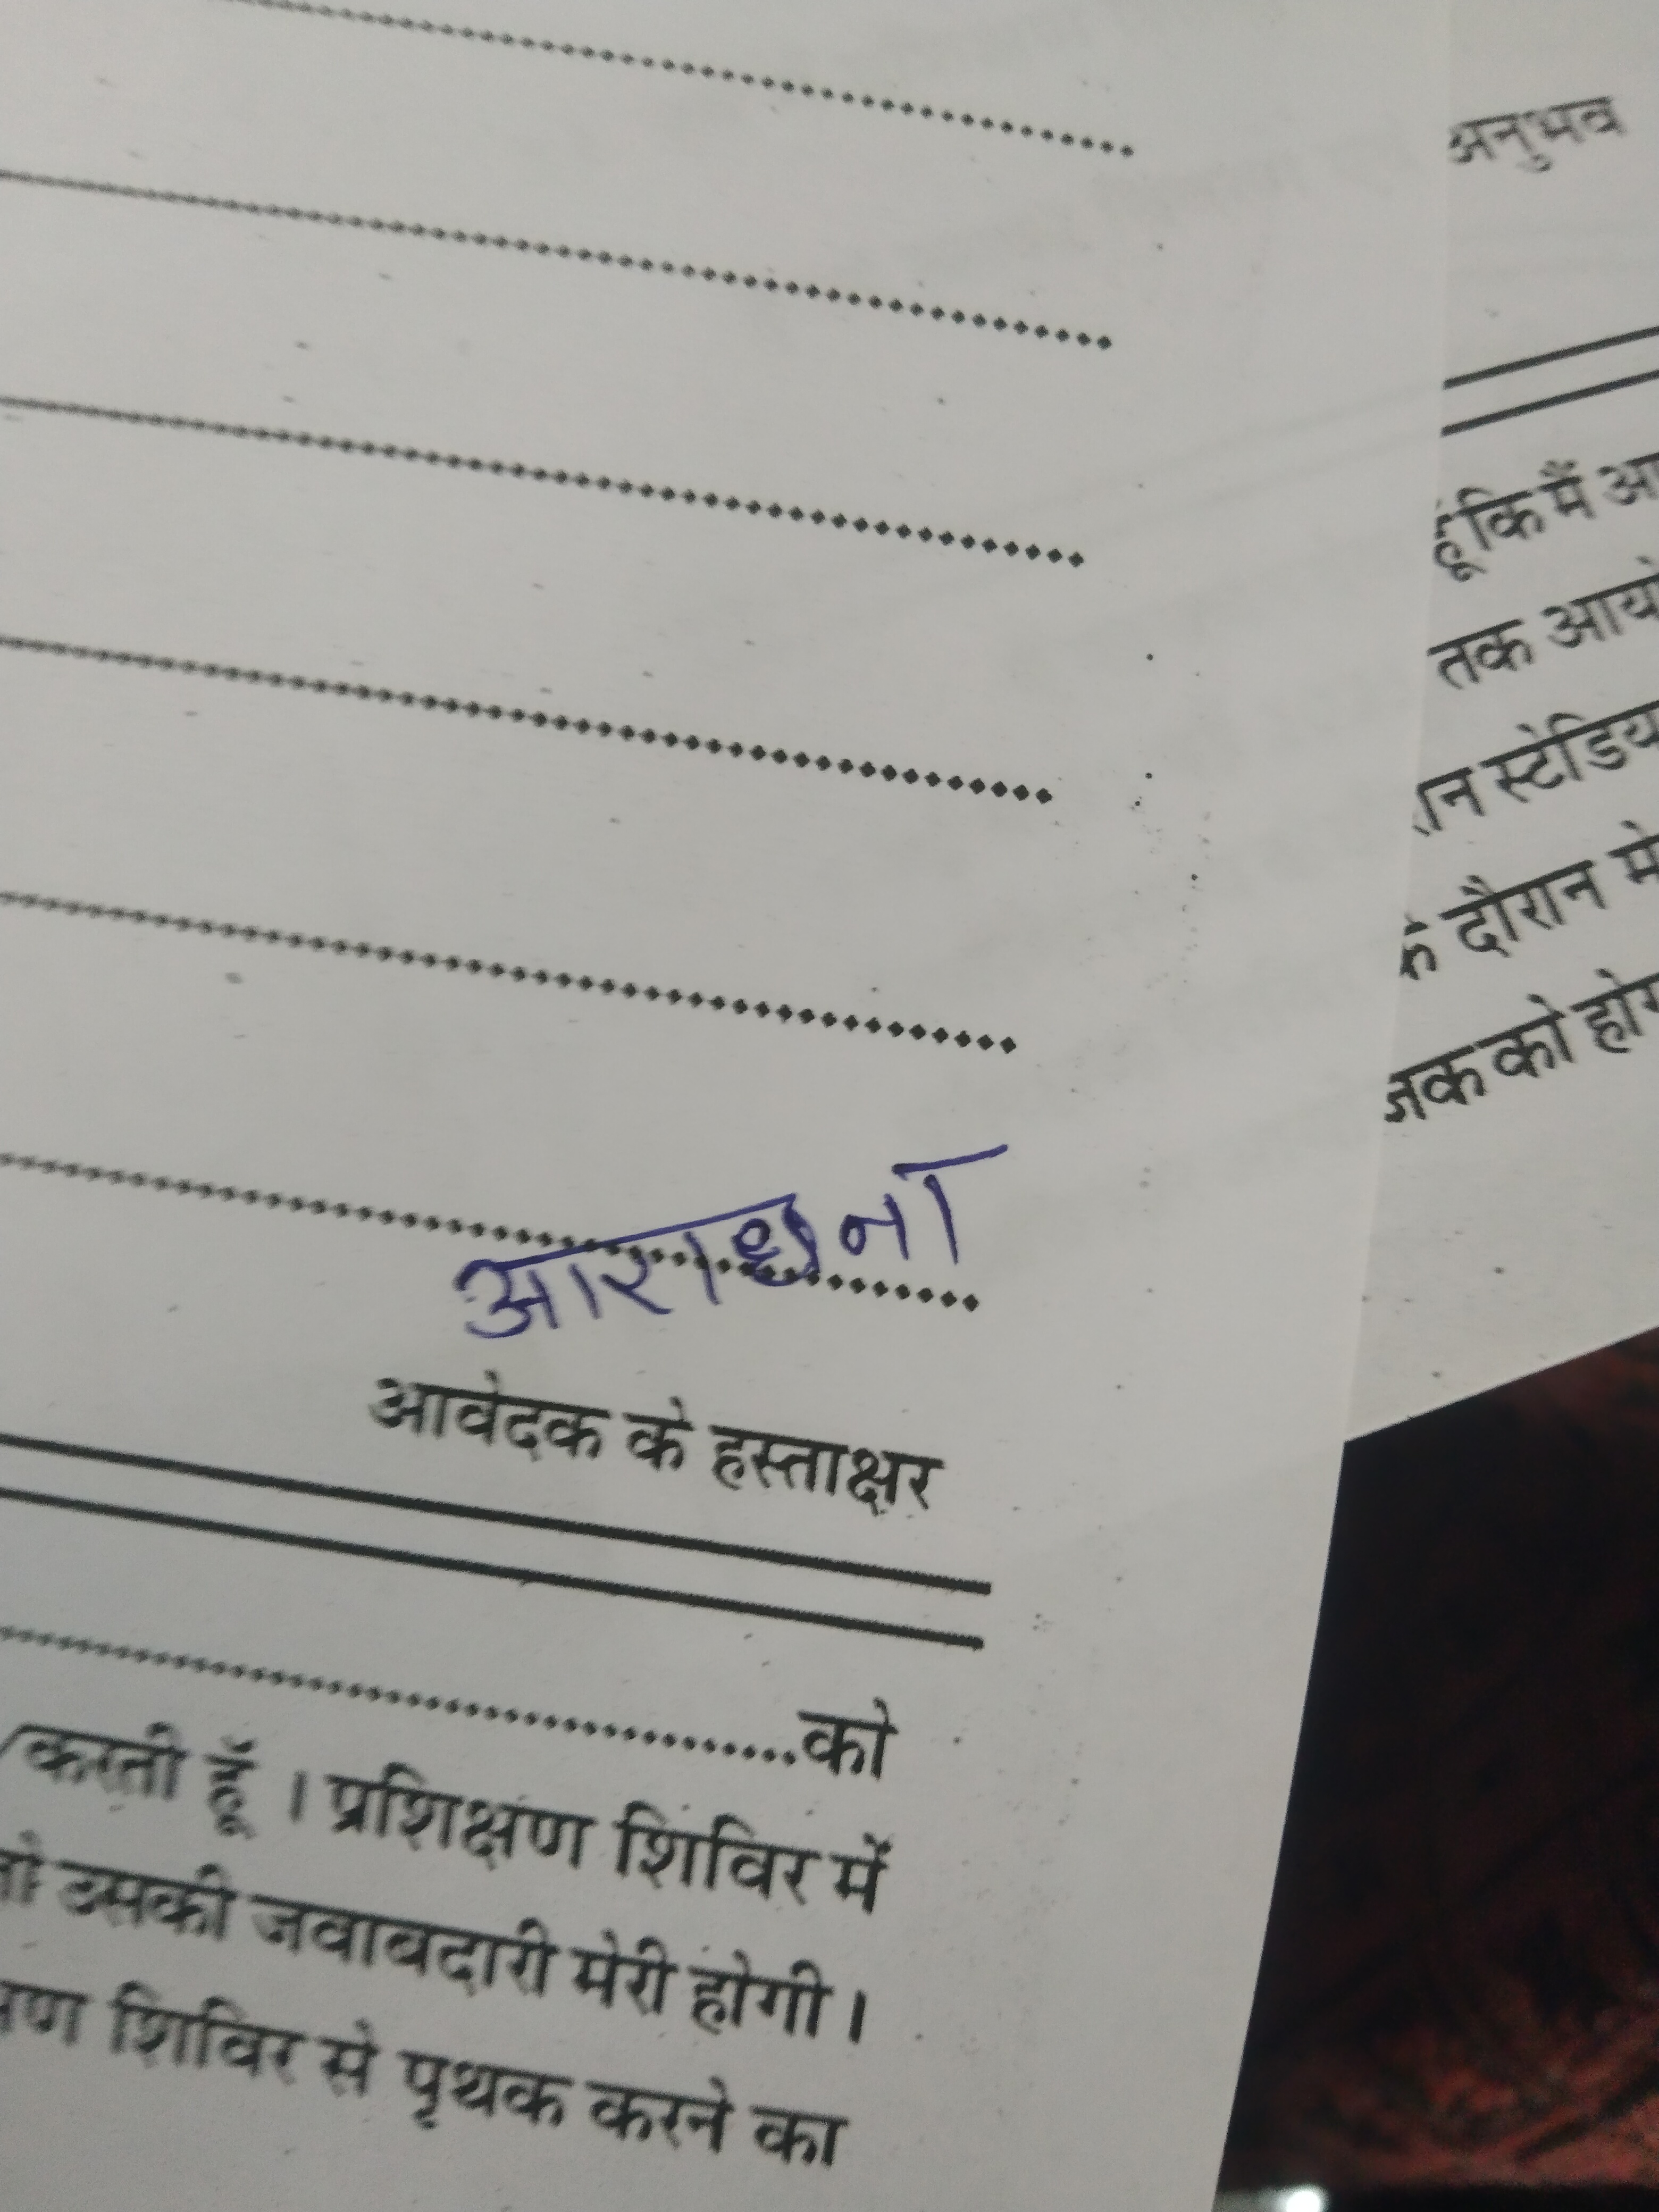 आराधना
आवेदक के हस्ताक्षर
को
/करती हूँ । प्रशिक्षण शिविर में
तो उसकी जवाबदारी मेरी होगी ।
शिविर से पृथक करने का
अनुभव
हूँ कि मैं
तक
स्टेडिय
के दौरान मे
को होग